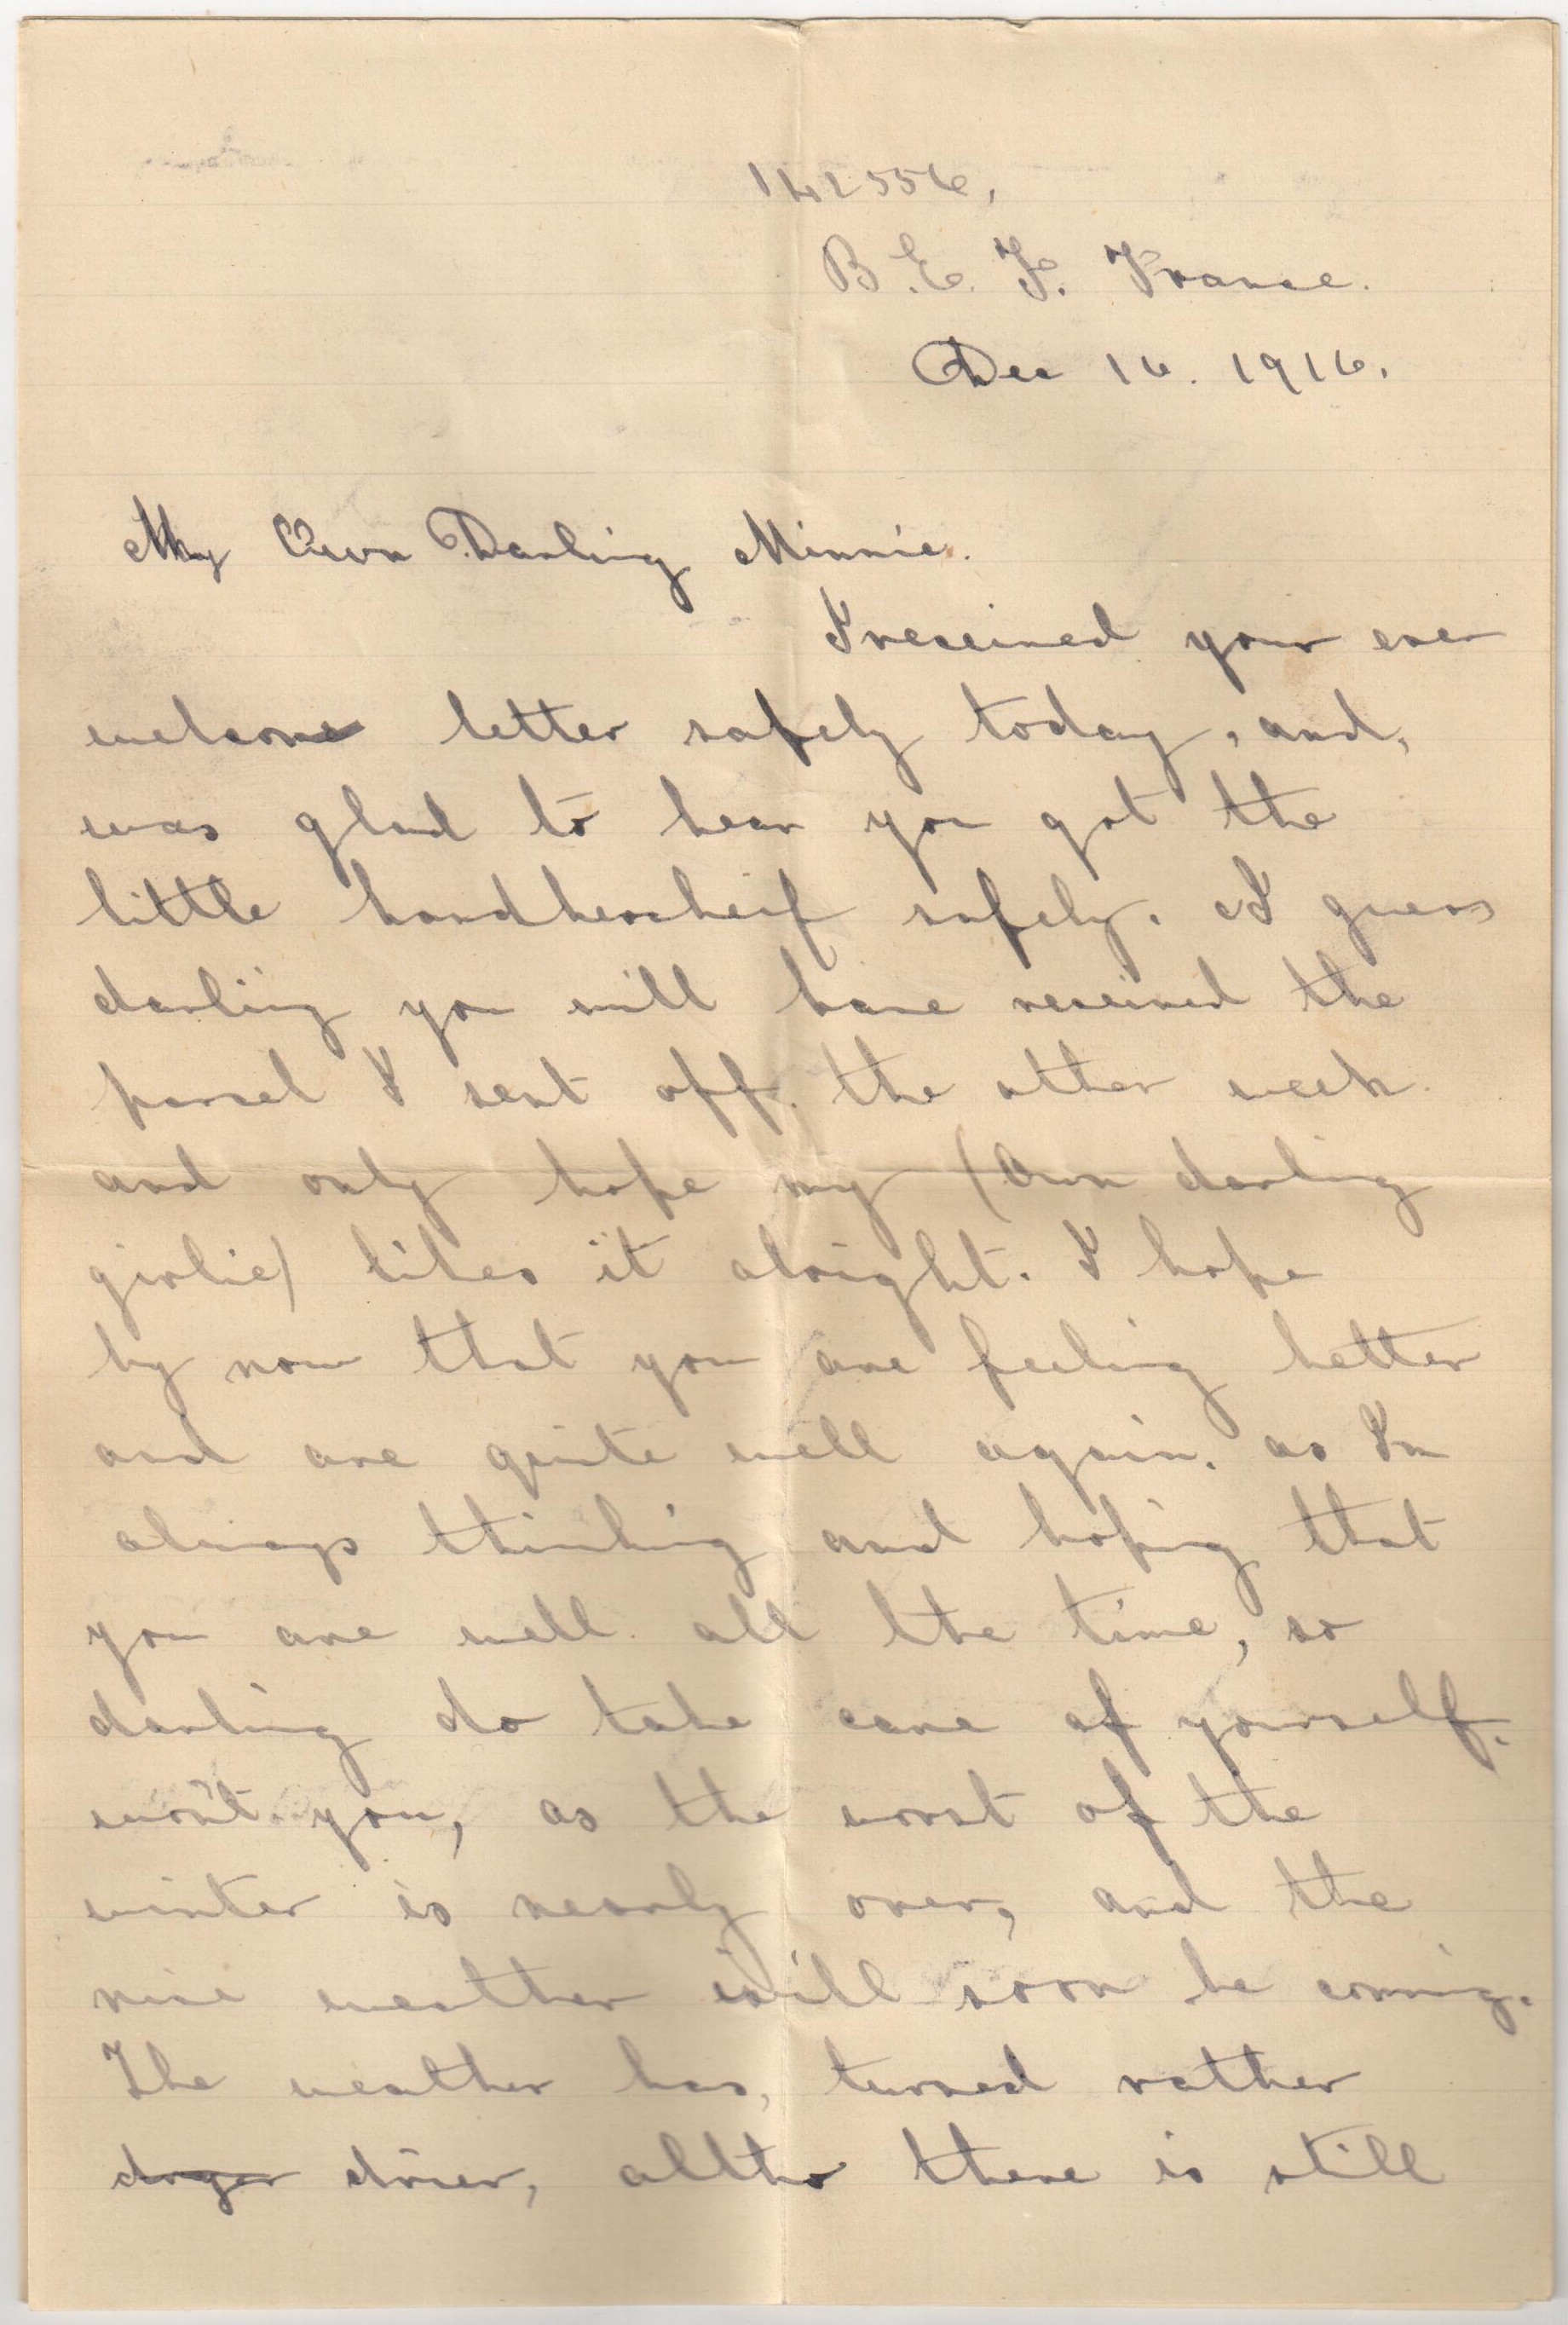 142556,
B.E.F. France.
Dec 16. 1916.
My Own Darling Minnie.
I received your ever
welcome letter safely today, and,
was glad to hear you got the
little handkercheif safely. I guess
darling you will have received the
parcel I sent off. the other week.
and only hope my (Own darling
girlie) likes it alright. I hope
by now that you are feeling better
and are quite well again. as Im
always thinking and hoping that
you are well. all the time, so
darling do take care of yourself.
won't you, as the worst of the
winter is nearly over, and the
nice weather will soon be coming.
The weather has, turned rather
dryer drier, altho there is still